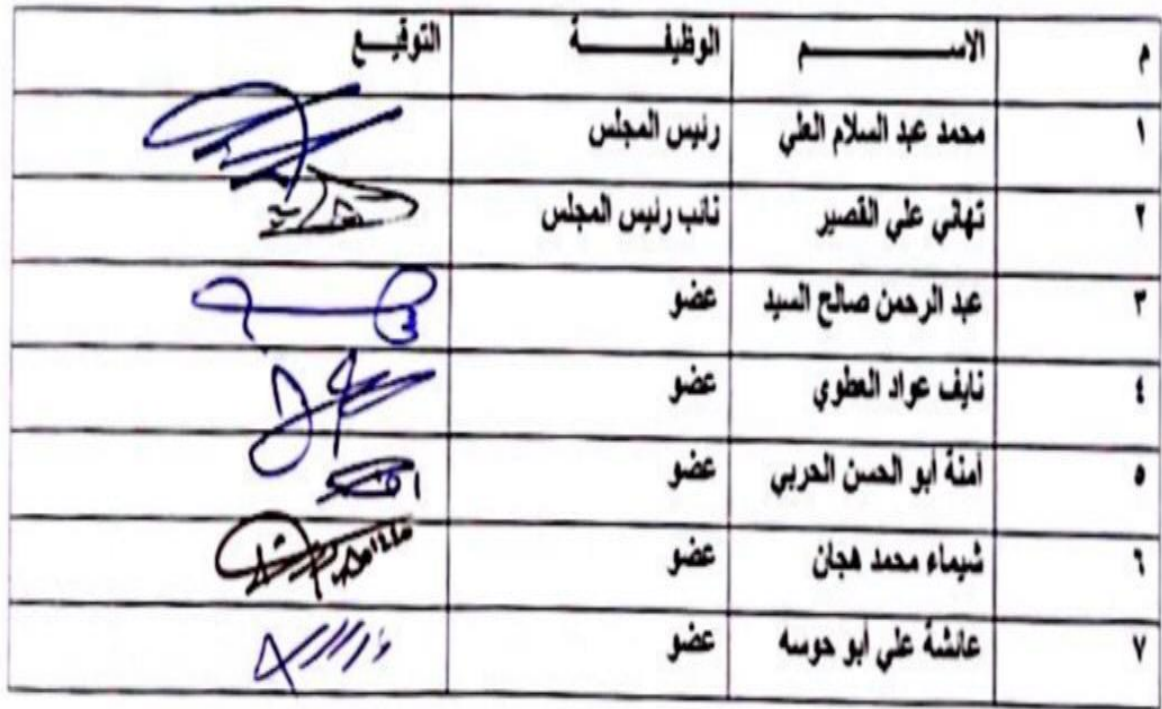 م الاســـــــم الوظيفـــــــة التوقيــع
١ محمد عبد السلام العلي رئيس المجلس
٢ تهاني علي القصير نائب رئيس المجلس
٣ عبد الرحمن صالح السيد عضو
٤ نايف عواد العطوي عضو
٥ أمنة أبو الحسن الحربي عضو
٦ شيماء محمد هجان عضو
٧ عائشة علي أبو حوسه عضو